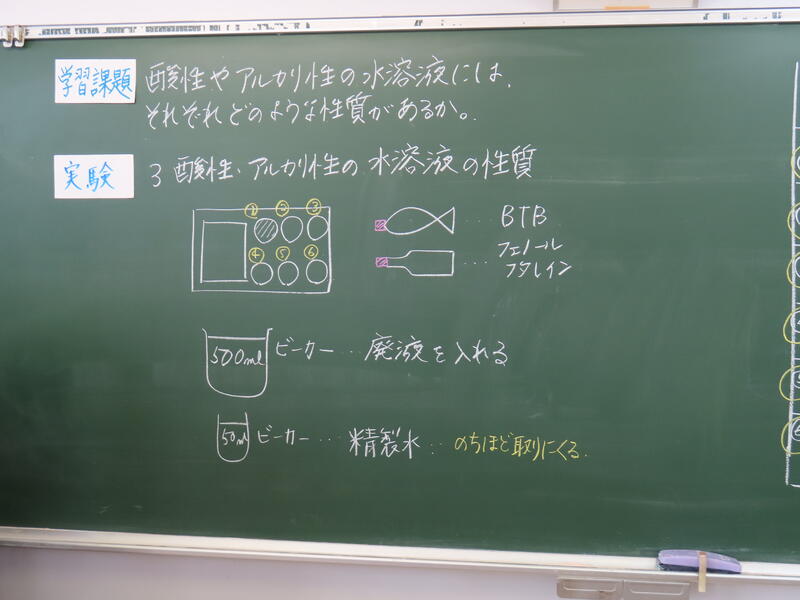 学習課題 酸性やアルカリ性の水溶液には、
それぞれどのような性質があるか。
実験 3 酸性、アルカリ性の水溶液の性質
① ② ③
④ ⑤ ⑥
… BTB
… フェノール
フタレイン
500ml ビーカー … 廃液を入れる
50ml ビーカー … 精製水 … のちほど取りにくる.